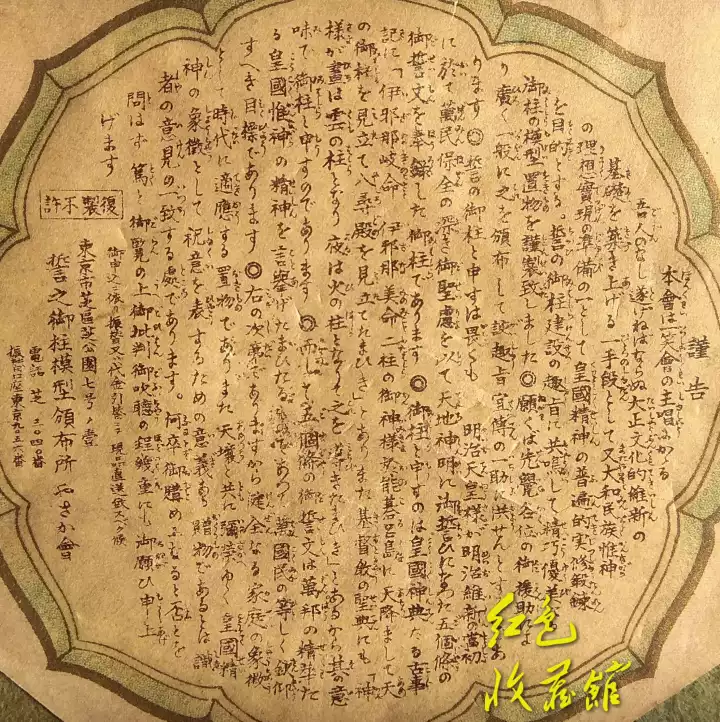 謹告
本會は笑會の主唱にかゝる
吾人のなし遂げねばならぬ大正文化的維新の
基礎を築き上げる一手段として又大和民族惟神
の理想實現の準備の一として皇國精神の普遍的實修鍛錬
を目的とする。誓の御柱建設の趣旨に共鳴して精巧優美なる
御柱の模型置物を謹製致しました◎願くは先覺各位の御援助により
廣く一般に之を頒布して誠趣旨宣傳の助に供せんとするのであ
ります◎誓の御柱と申すは畏くも 明治天皇様が明治維新の當初
に於て萬民保全の深き御聖慮を以て天地神明に御誓ひになつた五個條の
御誓文を奉錄した御柱であります◎御柱と申すのは皇國神典たる古事
記に「伊邪那岐命 伊邪那美命二柱の御神様が能碁呂島に天降まして天
の御柱を見立て八尋殿を見立てたまひき」とありまた基督敎の聖典にも「神
様が晝は雲の柱となり夜は火の柱となりて之を導きたまひき」とあるから其の意
味で御柱と申すのであります◎而して五個條の御誓文は萬邦の精華た
る皇國惟神の精神を言擧げたまひたるものであつて萬國民の等しく
すべき目標であります◎右の次第でありますから健全なる家庭の象徴
として時代に適應する置物でありまた天壤と共に彌榮ゆく皇國精
神の象徴として祝意を表するための意義ある贈物であるとは識
者の意見の一致する處であります。何卒御購めになると否とを
問はず篤と御覽の上御批判御吹聽の程鄭重に御願ひ申し上
げます
復製不許
御申込ニ依リ振替又ハ代金引替ニテ現品直送致スベク候
東京市芝區芝公園七号ノ壹
誓之御柱模型頒布所 やさか會
電話 芝 三〇四〇番
振替口座東京九五六番
红色
收藏館